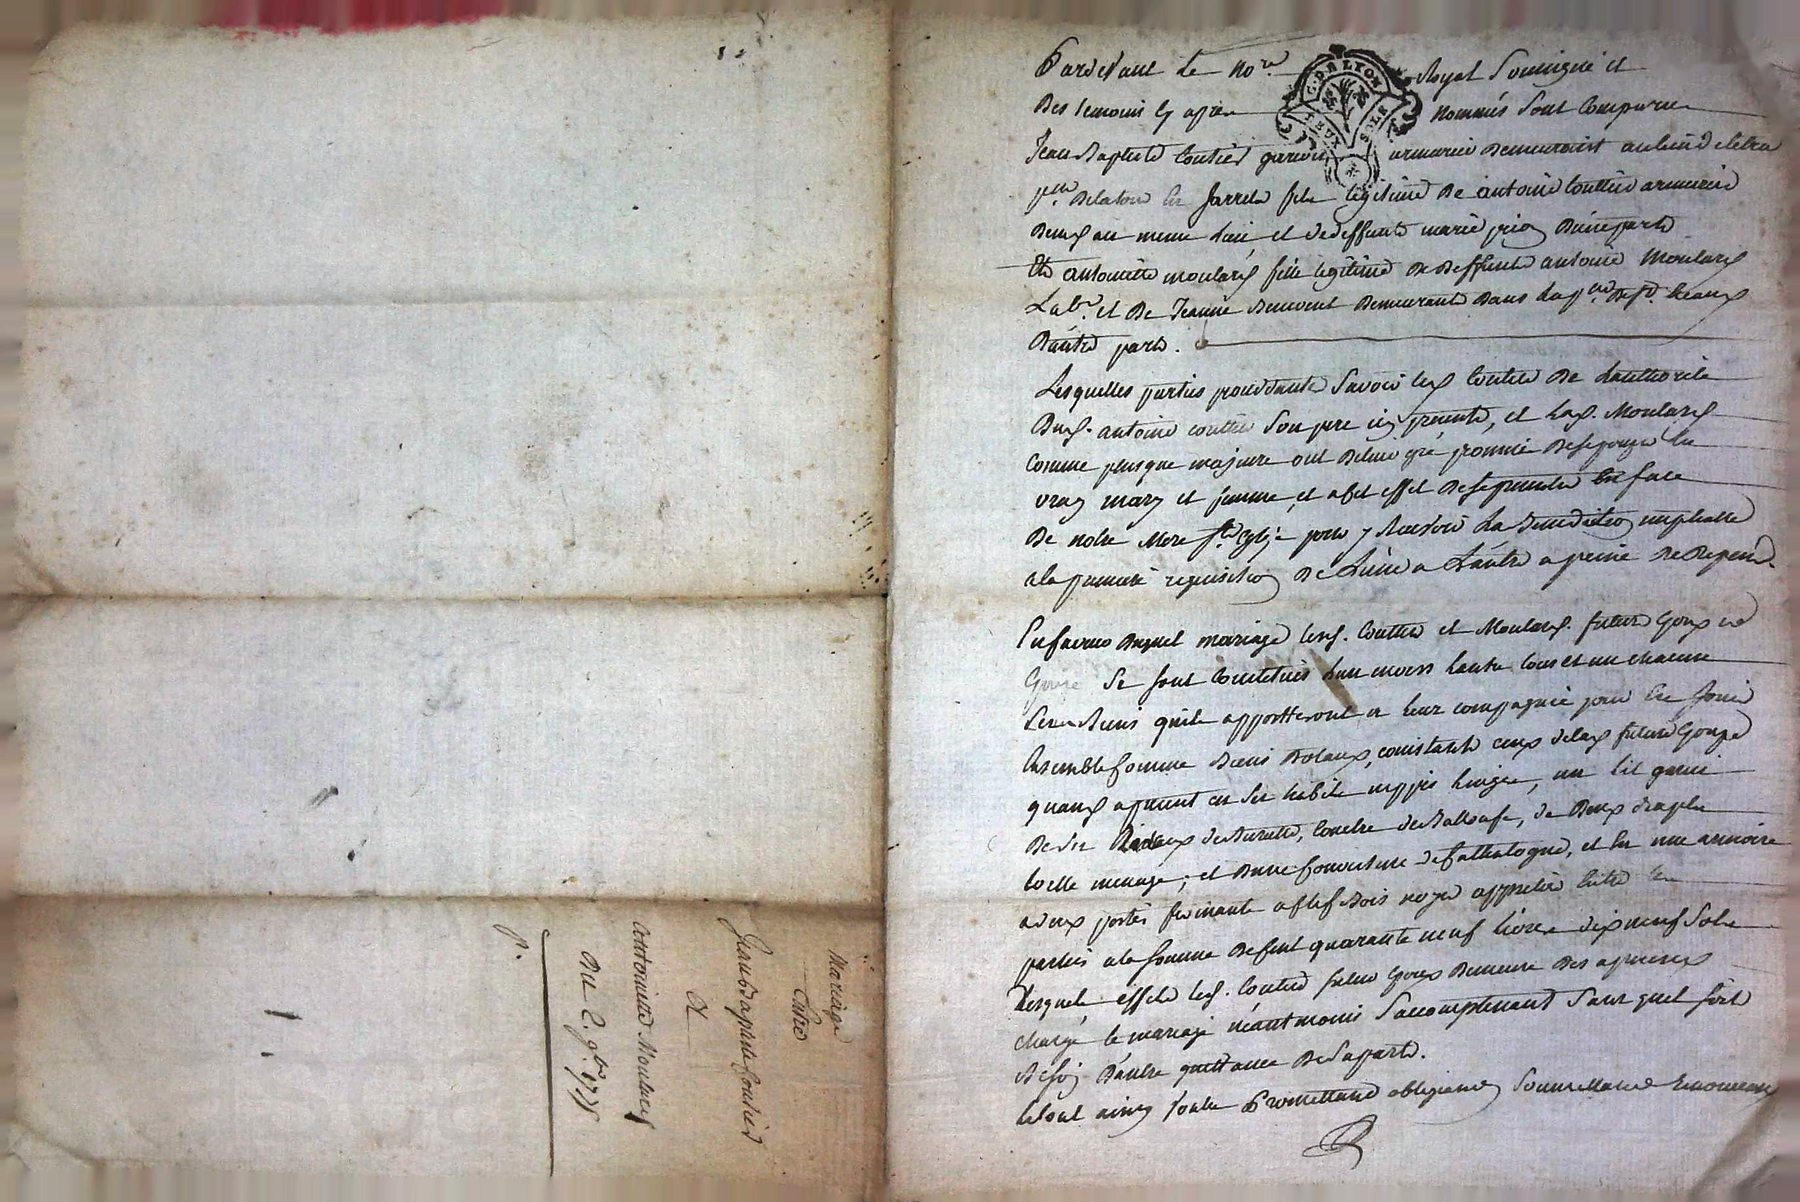 Pardevant Le Nore Royal Soussigné et
Des temoins cy apres nommés sont comparus
Jean Baptiste Coutier garçon armurier Demeurant au lieu
psse. De la tour en Jarrets fils legitime De antoine Couttier armurier
Demt au meme lieu et de deffunte marie D'une parte
Et antoinette moulard fille legitime De Deffunt antoine Moulard
Labr. et De Jeanne Demeurant Dans la psse
D'autre parte.
Lesquelles parties procedante Savoir led Coutier De L'authorité
Dud. antoine couttier Son pere icy present, et lad. Moulard
Comme plusque majeure ont De leur gré promis De s'epouser en
vray mary et femme, et a cet effet De se presenter en face
De notre Mere Ste Eglise pour y Recevoir La Benediction nuptialle
a la premiere requisition De L'une a L'autre a peine De Depend.
En faveur Duquel mariage lesd. Couttier et Moulard. futurs Epoux et
Epouse Se sont Constitués L'un envers L'autre tous et un chacuns
Leurs Biens qu'ils apportteront en leur compagnie pour En Jouir
Ensemble Comme Biens Dotaux, consistants ceux de lad future Epouse
quand a present en Ses habits nippes linges, un lit garni
De Ses Rideaux de Buratte, Couetre de Balloufe, de Deux draps
toille menage; et D'une Couverture de Cathalogne, et En une armoire
a deux portes fermante a clef Bois noyer appretiés Entre les
parties a la Somme De Cent quarante neuf livres dix neuf Sols
Desquels effets led. Coutier futur Epoux Demeure Des a present
chargé le mariage neantmoins S'accomplissant Sans quil Soit
Besoin D'autre quittance De Sa part.
Le tout ainsy voulu Promettant obligeant Soumettant Renonçant
Mariage
Entre
Jean Baptiste Coutier
Et
antoinette Moulard
Du 2. 9bre 17